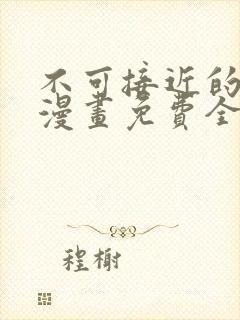 不可接近的
漫畫免費全
程榭